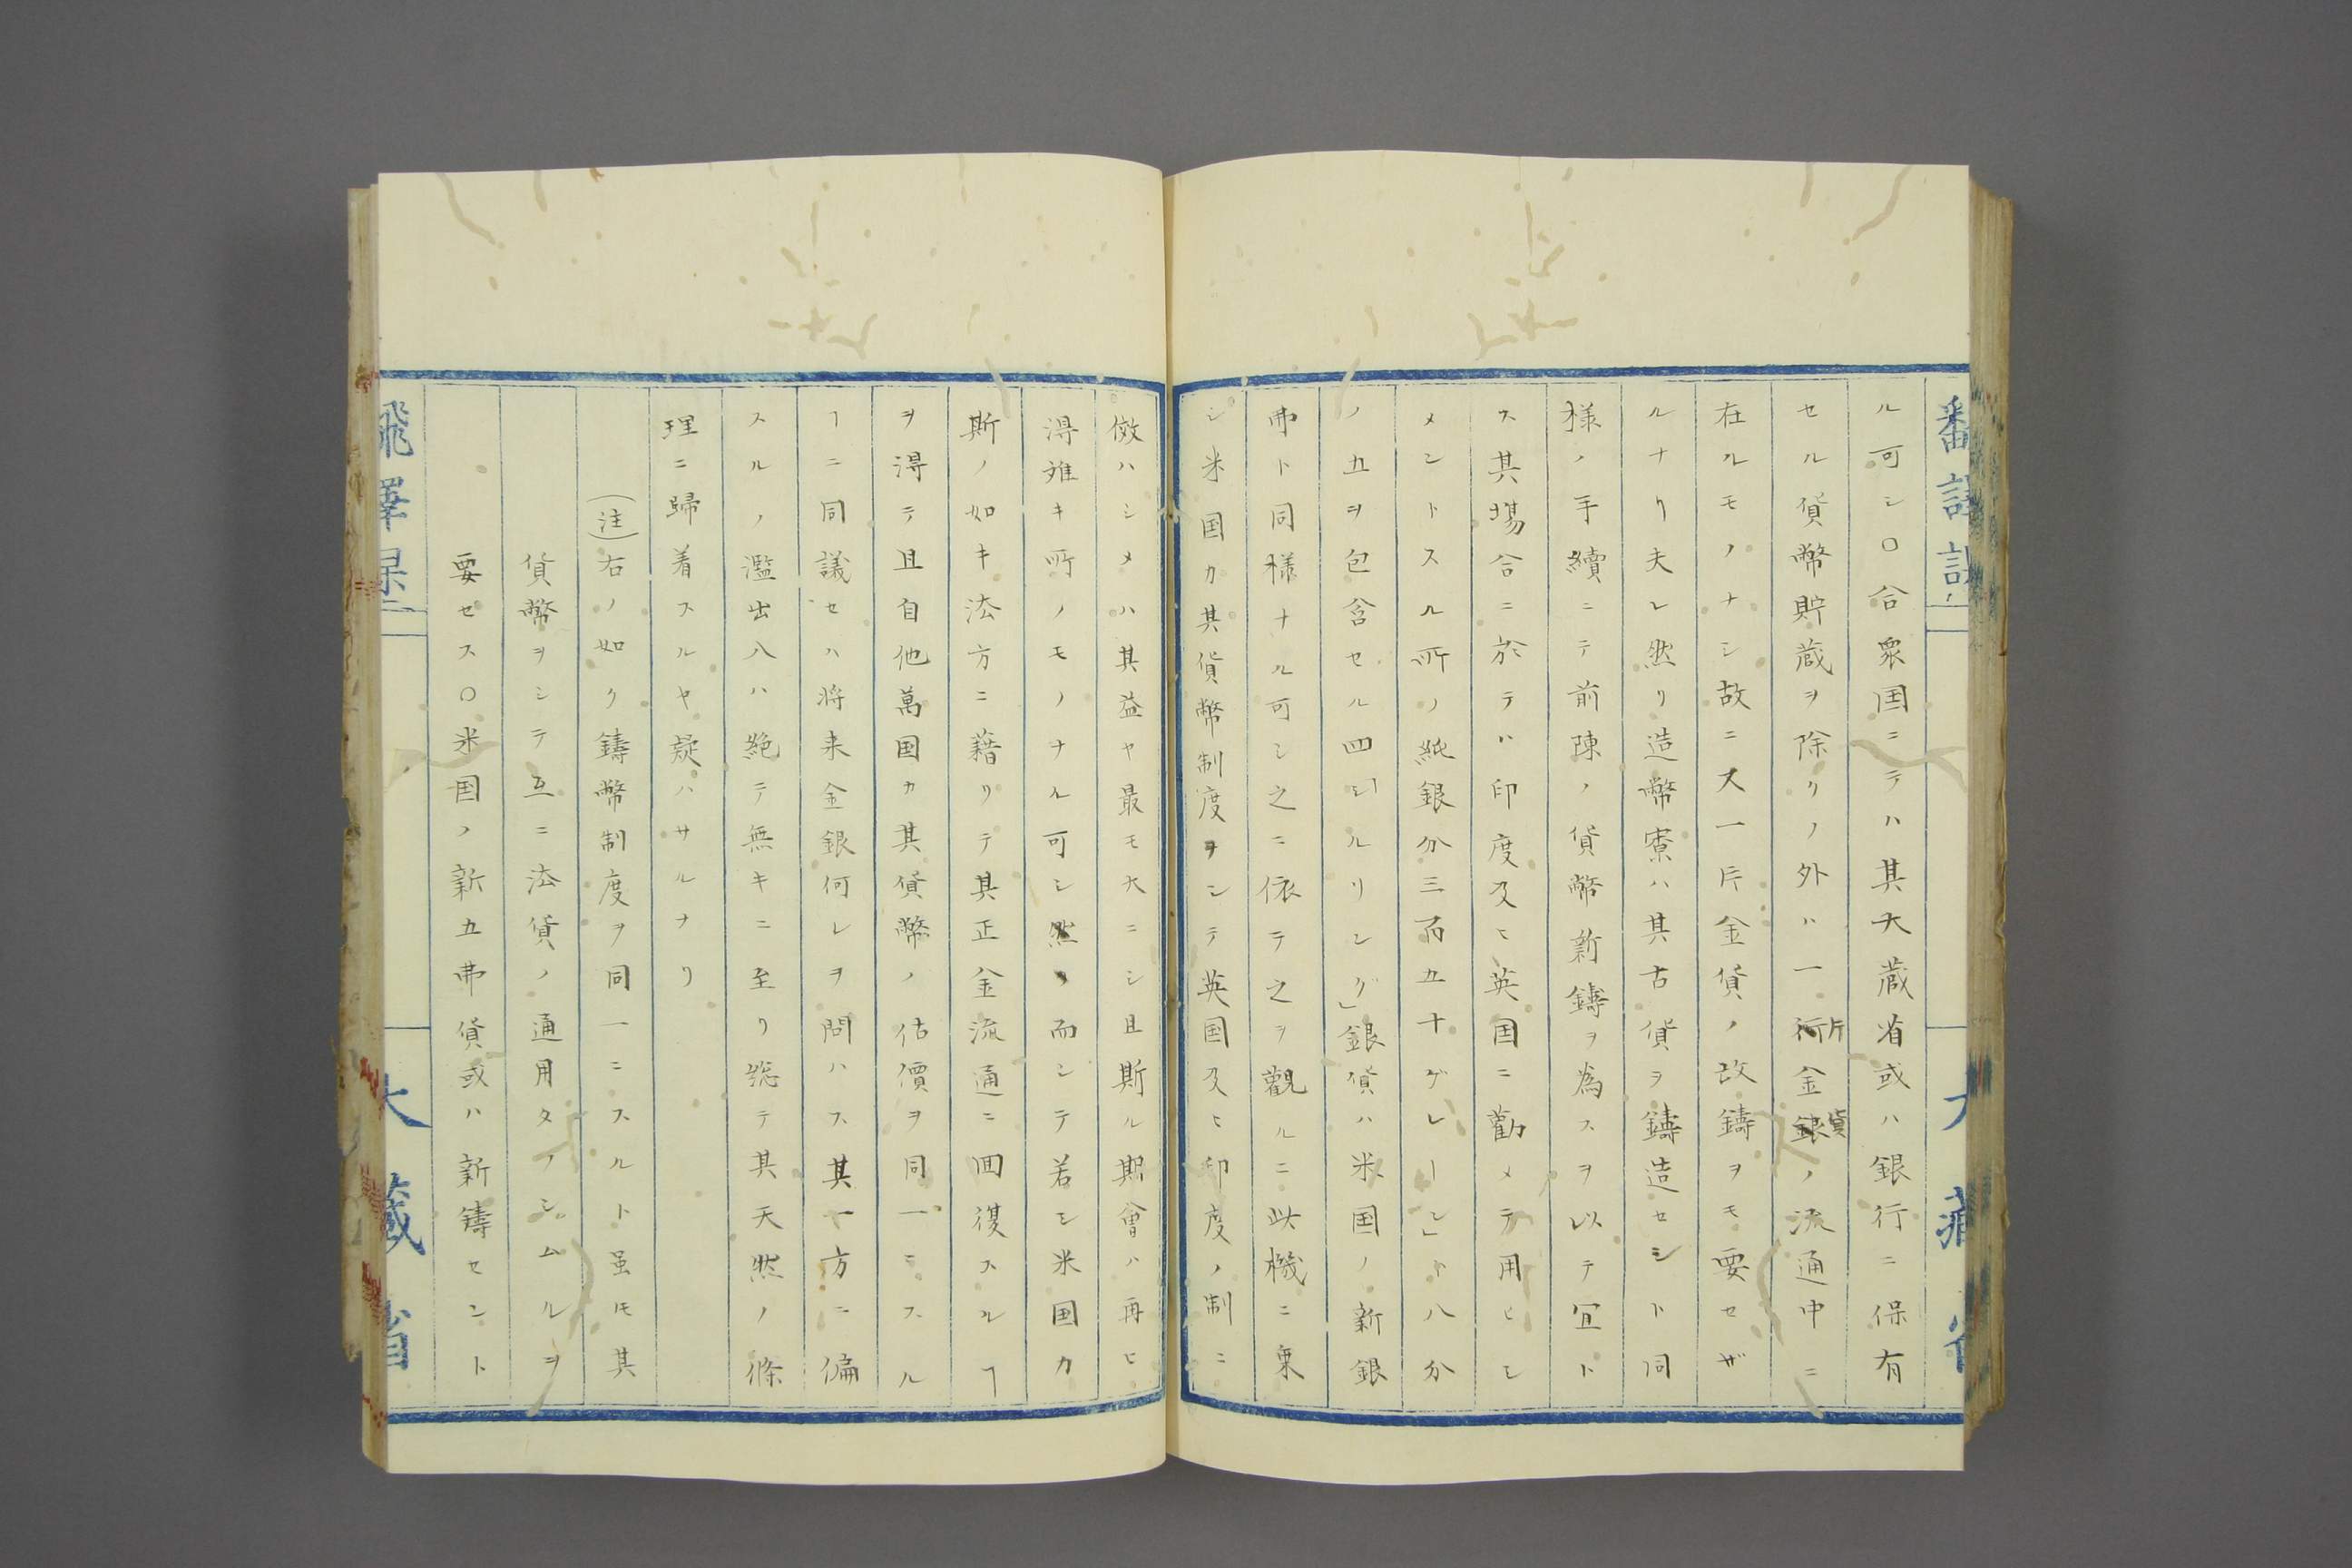 ル可シ〇合衆国ニテハ其大蔵省或ハ銀行ニ保有
セル貨幣貯蔵ヲ除クノ外ハ一片金貨ノ流通中ニ
在ルモノナシ故ニ又一片金貨ノ改鋳ヲモ要セザ
ルナリ夫レ然リ造幣寮ハ其古貨ヲ鋳造セシト同
様ノ手續ニテ前陳ノ貨幣新鑄ヲ為スヲ以テ宜ト
ス其場合ニ於テハ印度及ヒ英国ニ勸メテ用ヒシ
メントスル所ノ純銀分三百五十「グレーン」ト八分
ノ五ヲ包含セル四「シルリング」銀貨ハ米国ノ新銀
弗ト同様ナル可シ之ニ依テ之ヲ觀ルニ此機ニ乗
シ米国カ其貨幣制度ヲシテ英国及ヒ印度ノ制ニ
倣ハシメハ其益ヤ最モ大ニシ且斯ル期會ハ再ヒ
得難キ所ノモノナル可シ然リ而シテ若シ米国カ
斯ノ如キ法方ニ藉リテ其正金流通ニ回復スルヿ
ヲ得テ且自他萬国カ其貨幣ノ估價ヲ同一ニスル
ヿニ同議セハ将来金銀何レヲ問ハス其一方ニ偏
スルノ濫出入ハ絶テ無キニ至リ總テ其天然ノ條
理ニ歸着スルヤ疑ハサルナリ
(注)右ノ如ク鑄幣制度ヲ同一ニスルト虽モ其
貨幣ヲシテ互ニ法貨ノ通用タラシムルヲ
要セス〇米国ノ新五弗貨或ハ新鑄セント
大蔵省
大蔵省